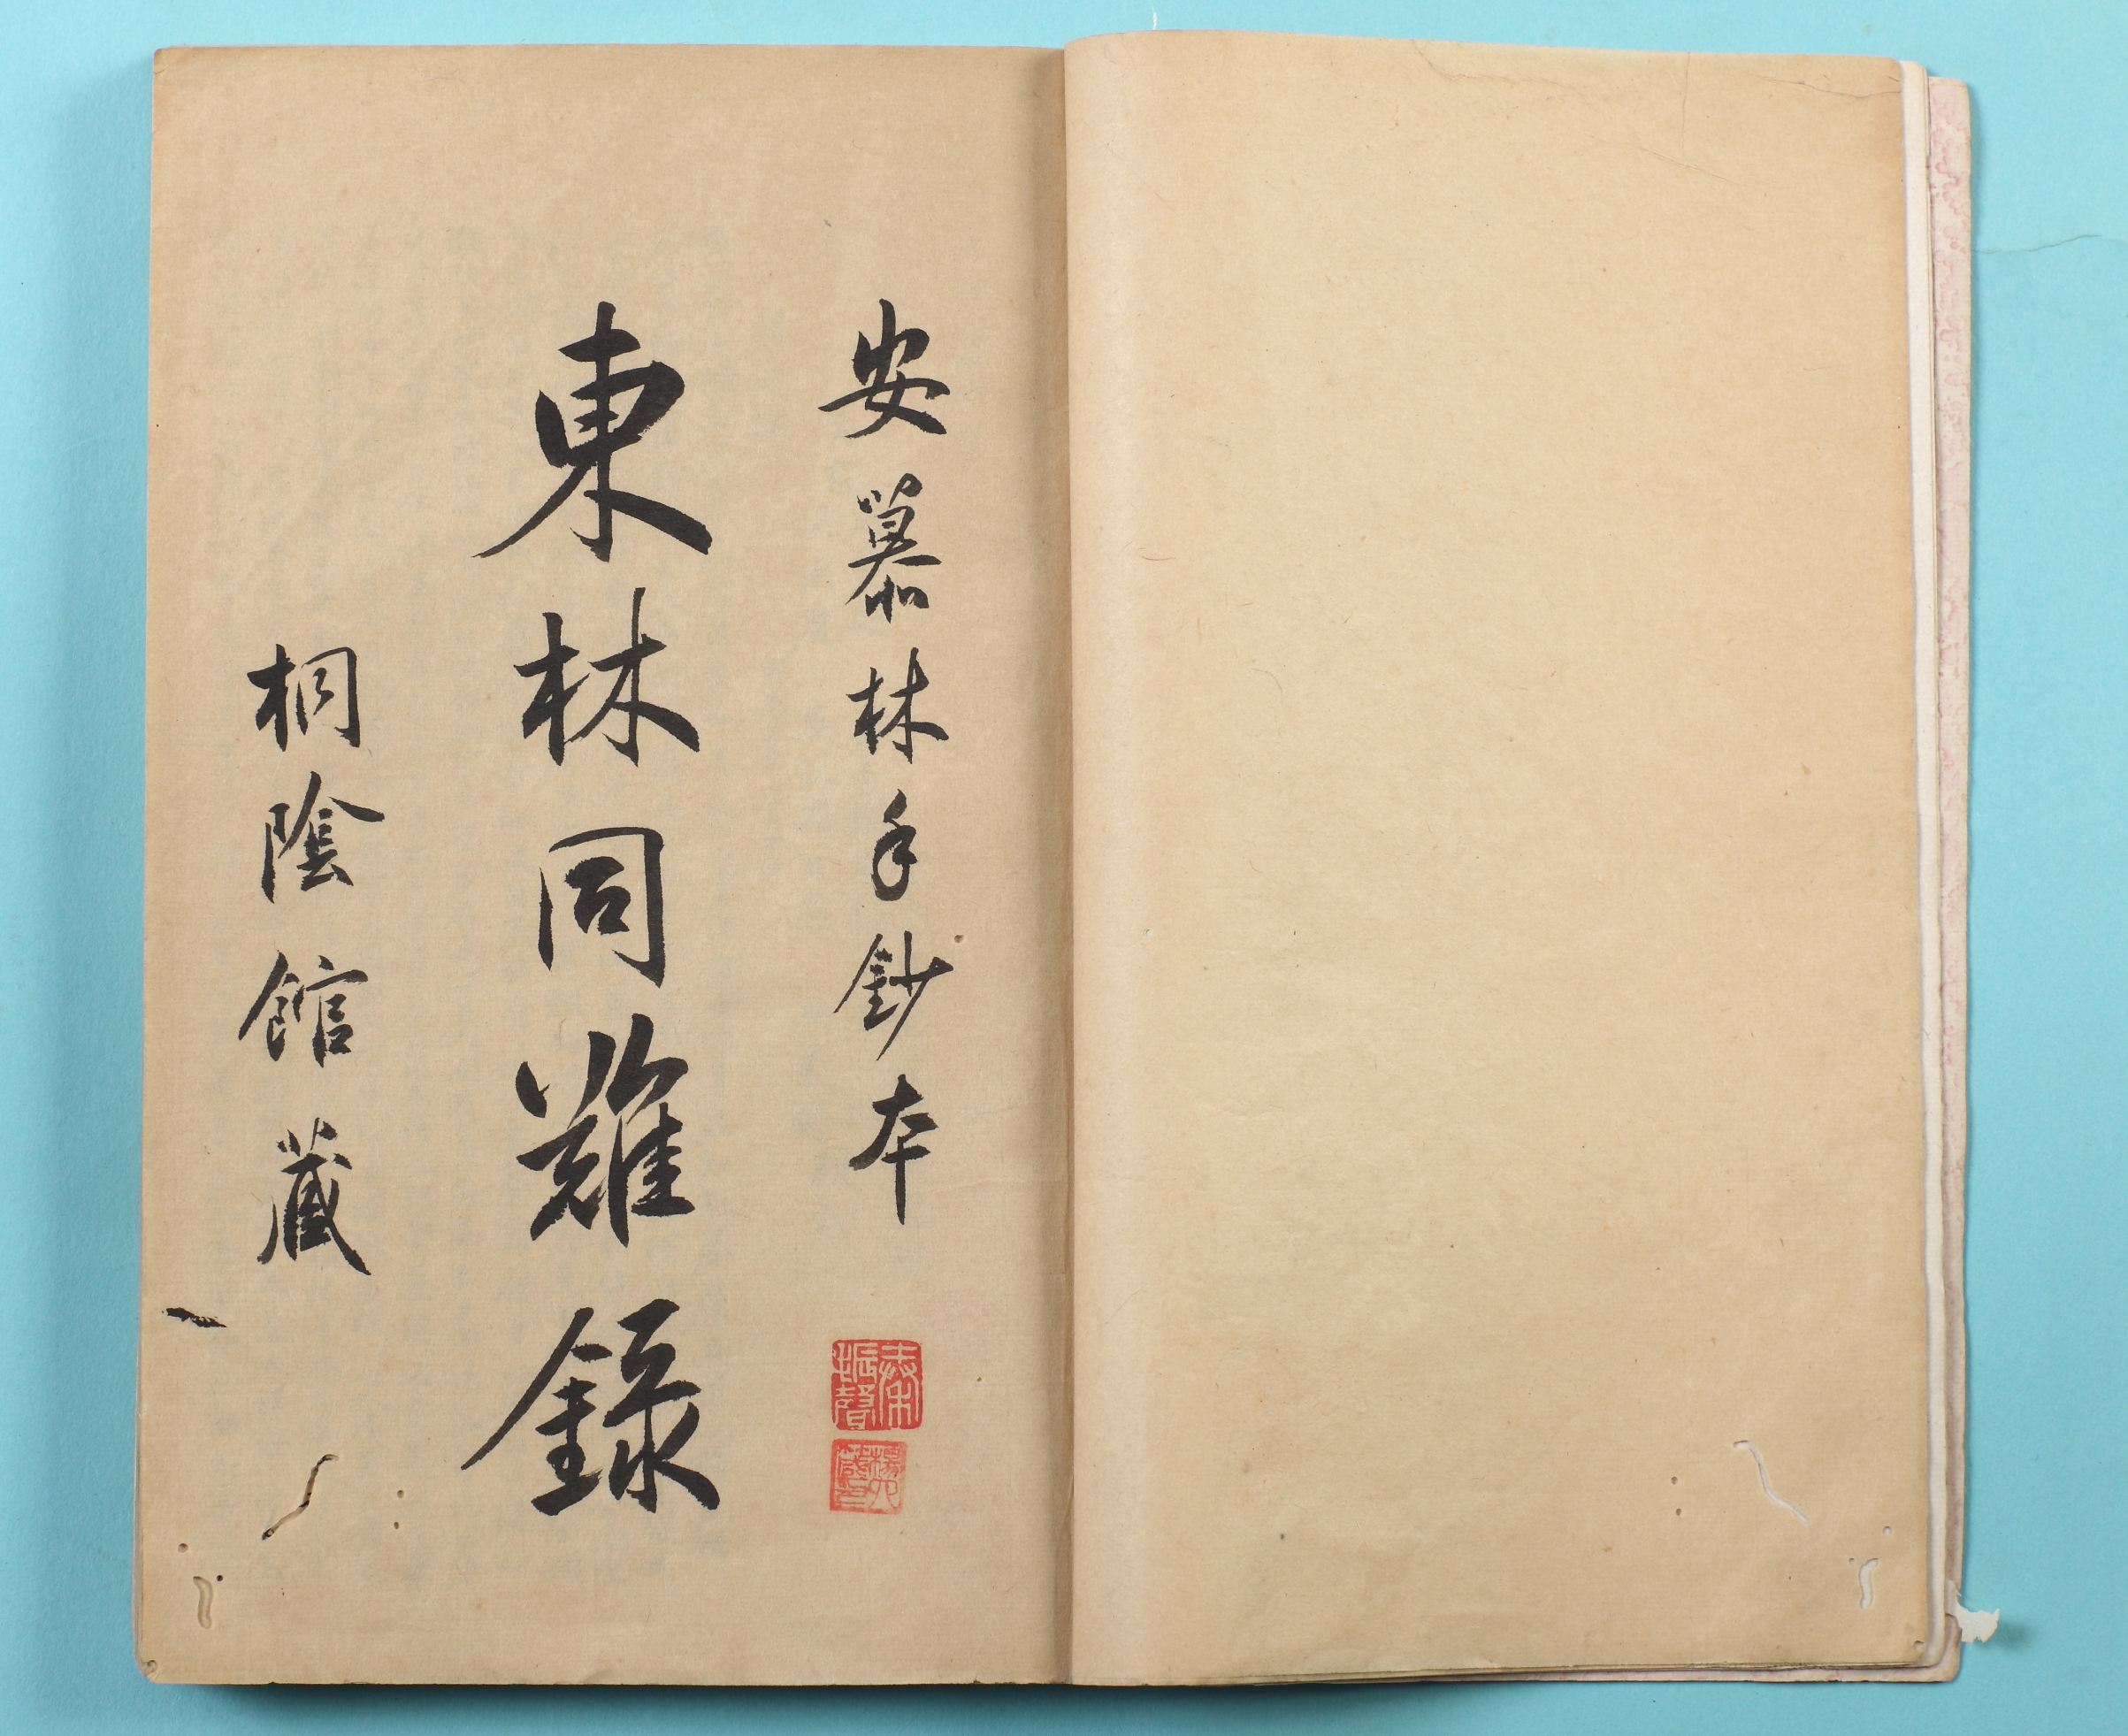 安慕林手鈔本
東林同難錄
桐陰館藏
秦振聲